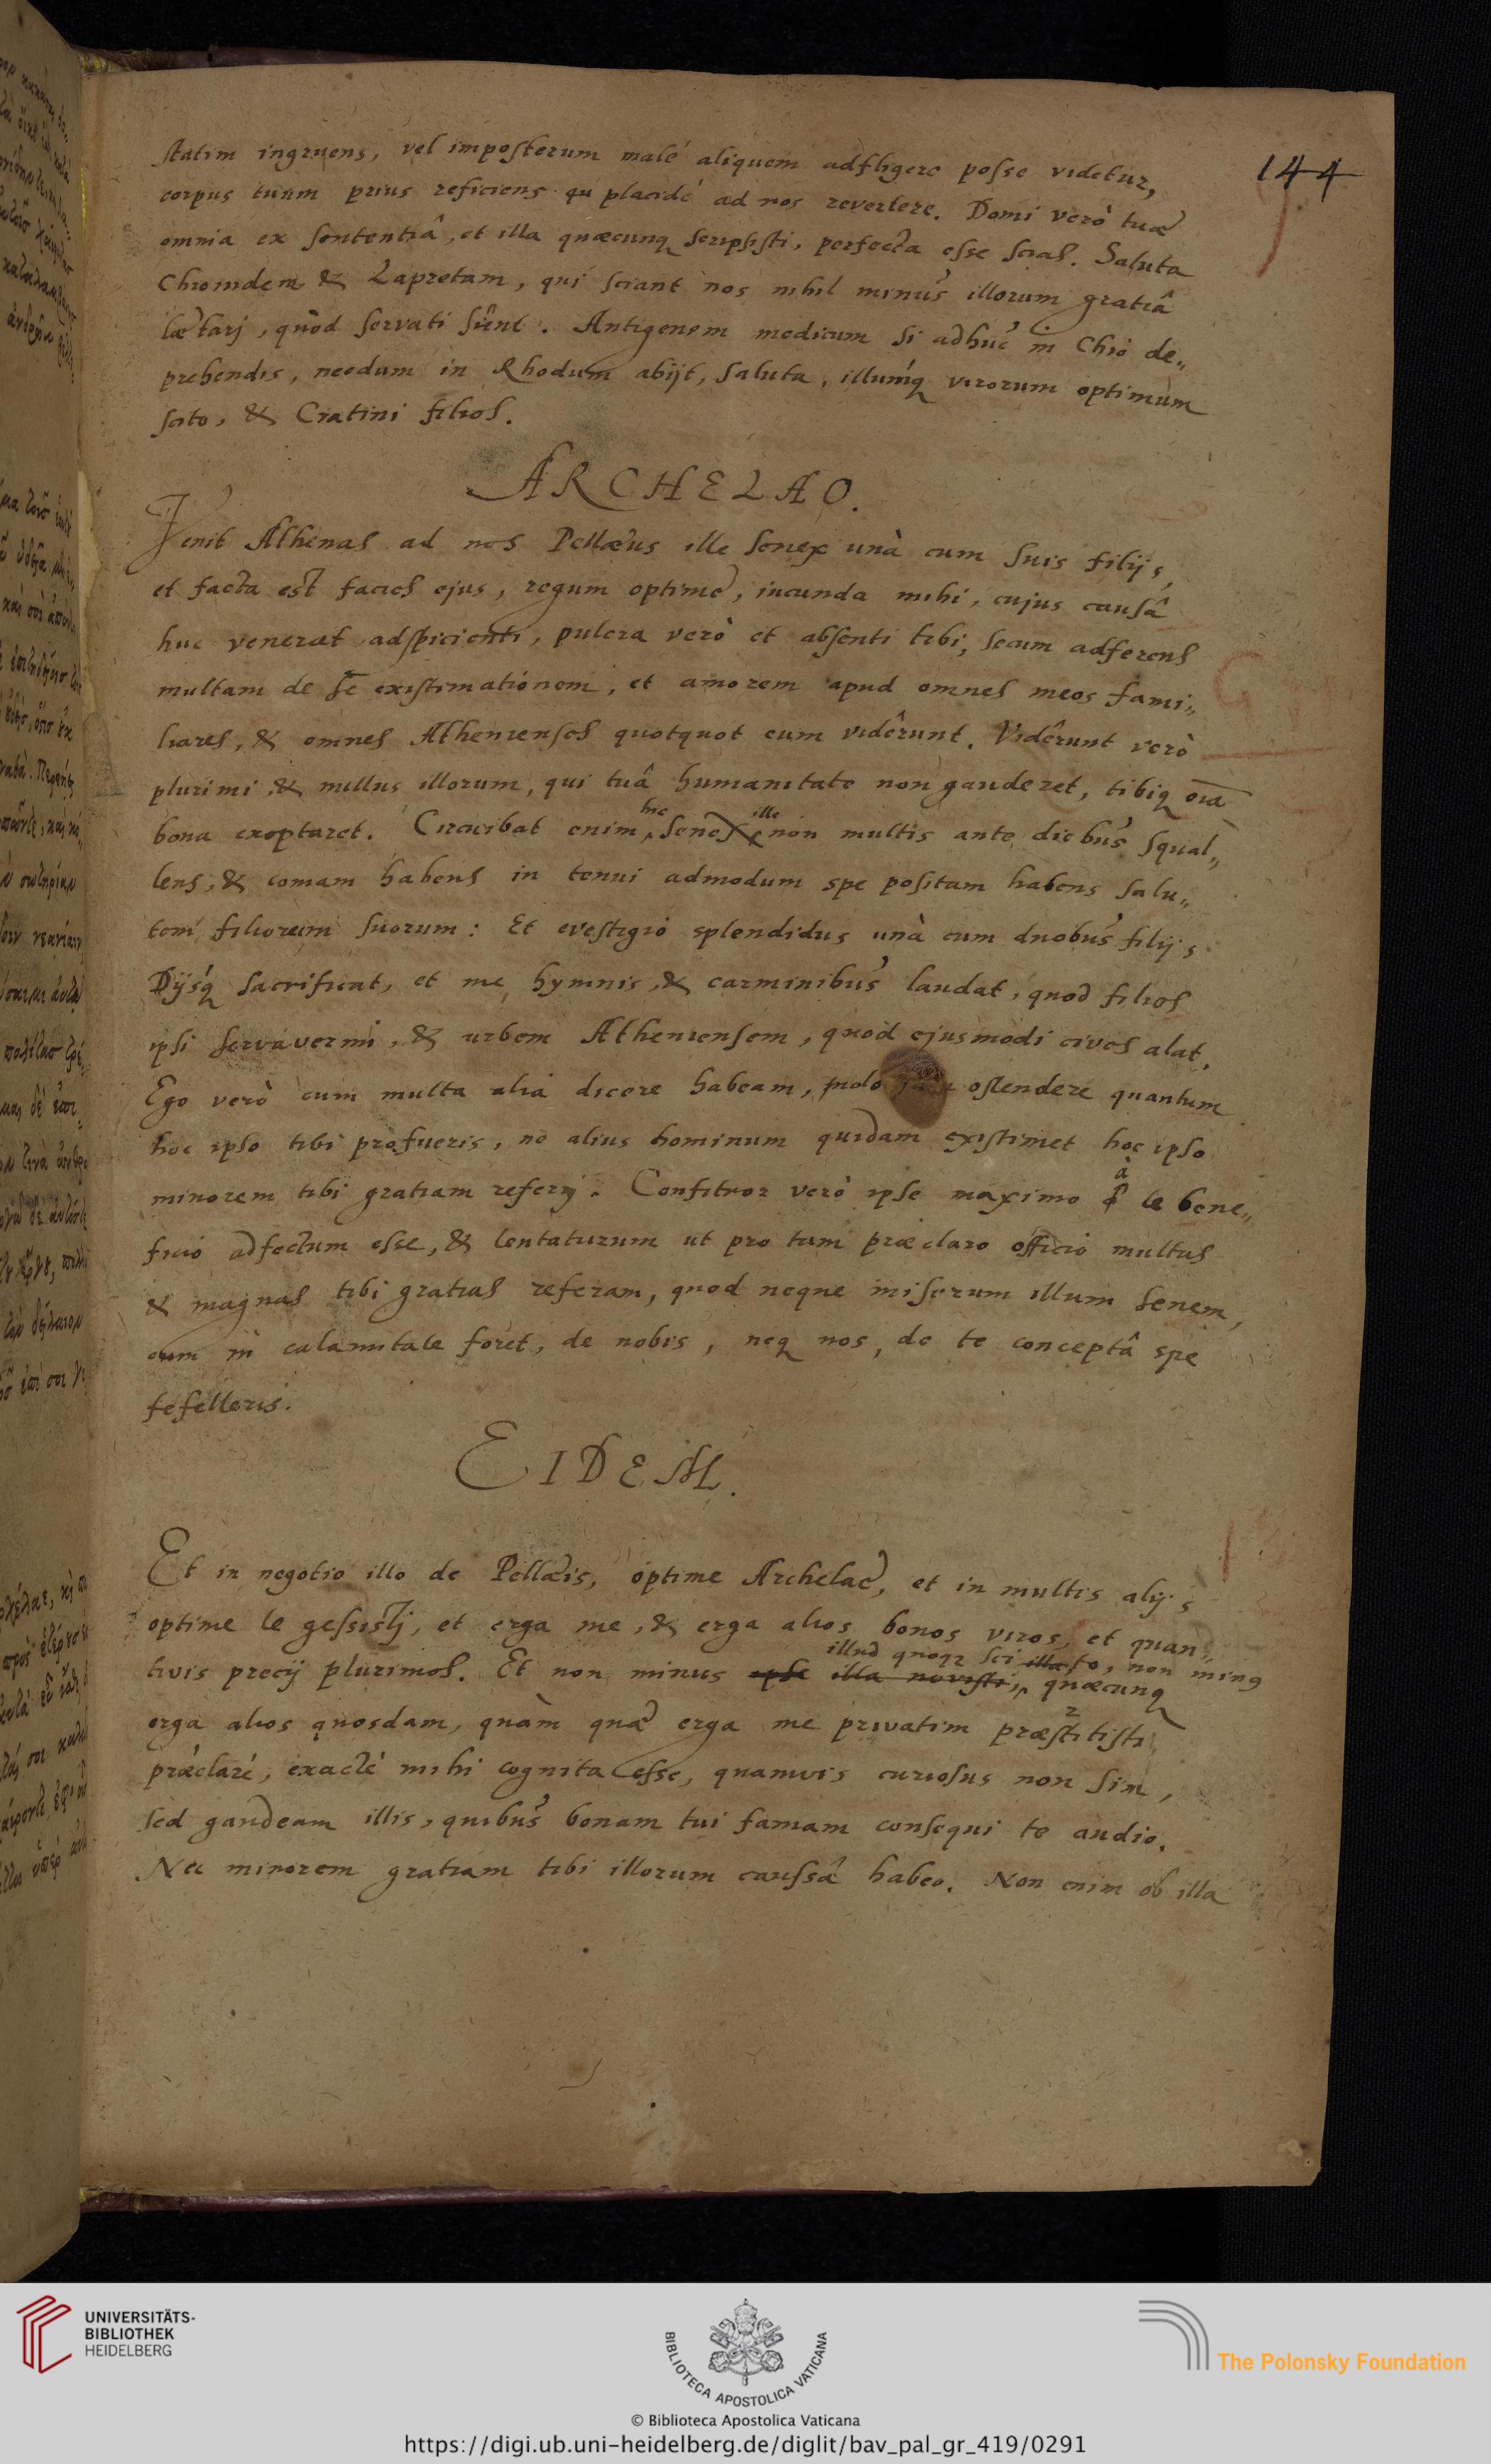 144
statim ingruens, vel imposterum malè aliquem adfligere posse videtur,
corpus tuum prius reficiens placidè ad nos revertere. Domi verò tuæ
omnia ex sententiâ, et illa quæcunq scripsisti, perfecta esse scias. Saluta
Chionidem & Lapretam, qui sciant nos nihil minus illorum gratiâ
lætarj, quòd servati sunt. Antigenem medicum si adhuc in Chio de„
prehendis, necdum in Rhodum abijt, saluta, illumq́ virorum optimum
scito, & Cratini filios.
ARCHELAO.
Venit Athenas ad nos Pellæus ille senex unà cum suis filijs,
et facta est facies ejus, regum optime, iucunda mihi, cujus causâ
huc venerat adspicienti, pulcra verò et absenti tibi, secum adferens
multam de se existimationem, et amorem apud omnes meos fami„
liares, & omnes Athenienses quotquot eum vidêrunt. Vidêrunt verò
plurimi & nullus illorum, qui tuâ humanitate non gauderet, tibiq oīa
bona exoptaret. Circuibat enim hic senex ille non multis ante diebus squal„
lens, & comam habens in tenui admodum spe positam habens salu„
tem filiorum suorum: Et evestigio splendidus unà cum duobus filijs
Dijsq́ sacrificat, et me hymnis, & carminibus laudat, quod filios
ipsi servaverim, & urbem Atheniensem, quòd ejusmodi cives alat.
Ego verò cum multa alia dicere habeam, nolo ostendere quantum
hoc ipso tibi profueris, ne alius hominum quidam existimet hoc ipso
minorem tibi gratiam referrj. Confiteor verò ipse maximo à te bene„
ficio adfectum esse, & tentaturum ut pro tam præclaro officio multas
& magnas tibi gratias referam, quod neque miserum illum senem,
cum in calamitate foret, de nobis, neq nos, de te conceptâ spe
fefelleris.
EIDEM.
Et in negotio illo de Pellæis, optime Archelae, et in multis alijs
optime te gessistj, et erga me, & erga alios bonos viros, et quan„
tivis precij plurimos. Et non minus ipse illa novisti, illud quoque scito, non minus quæcunq
erga alios quosdam, quàm quæ erga me privatim præstitisti
præclarè, exactè mihi cognita esse, quamvis curiosus non sim,
sed gaudeam illis, quibus bonam tui famam consequi te audio.
Nec minorem gratiam tibi illorum caussâ habeo. Non enim ob illa
UNIVERSITÄTS-
BIBLIOTHEK
HEIDELBERG
BIBLIOTECA APOSTOLICA VATICANA
The Polonsky Foundation
© Biblioteca Apostolica Vaticana
https://digi.ub.uni-heidelberg.de/diglit/bav_pal_gr_419/0291